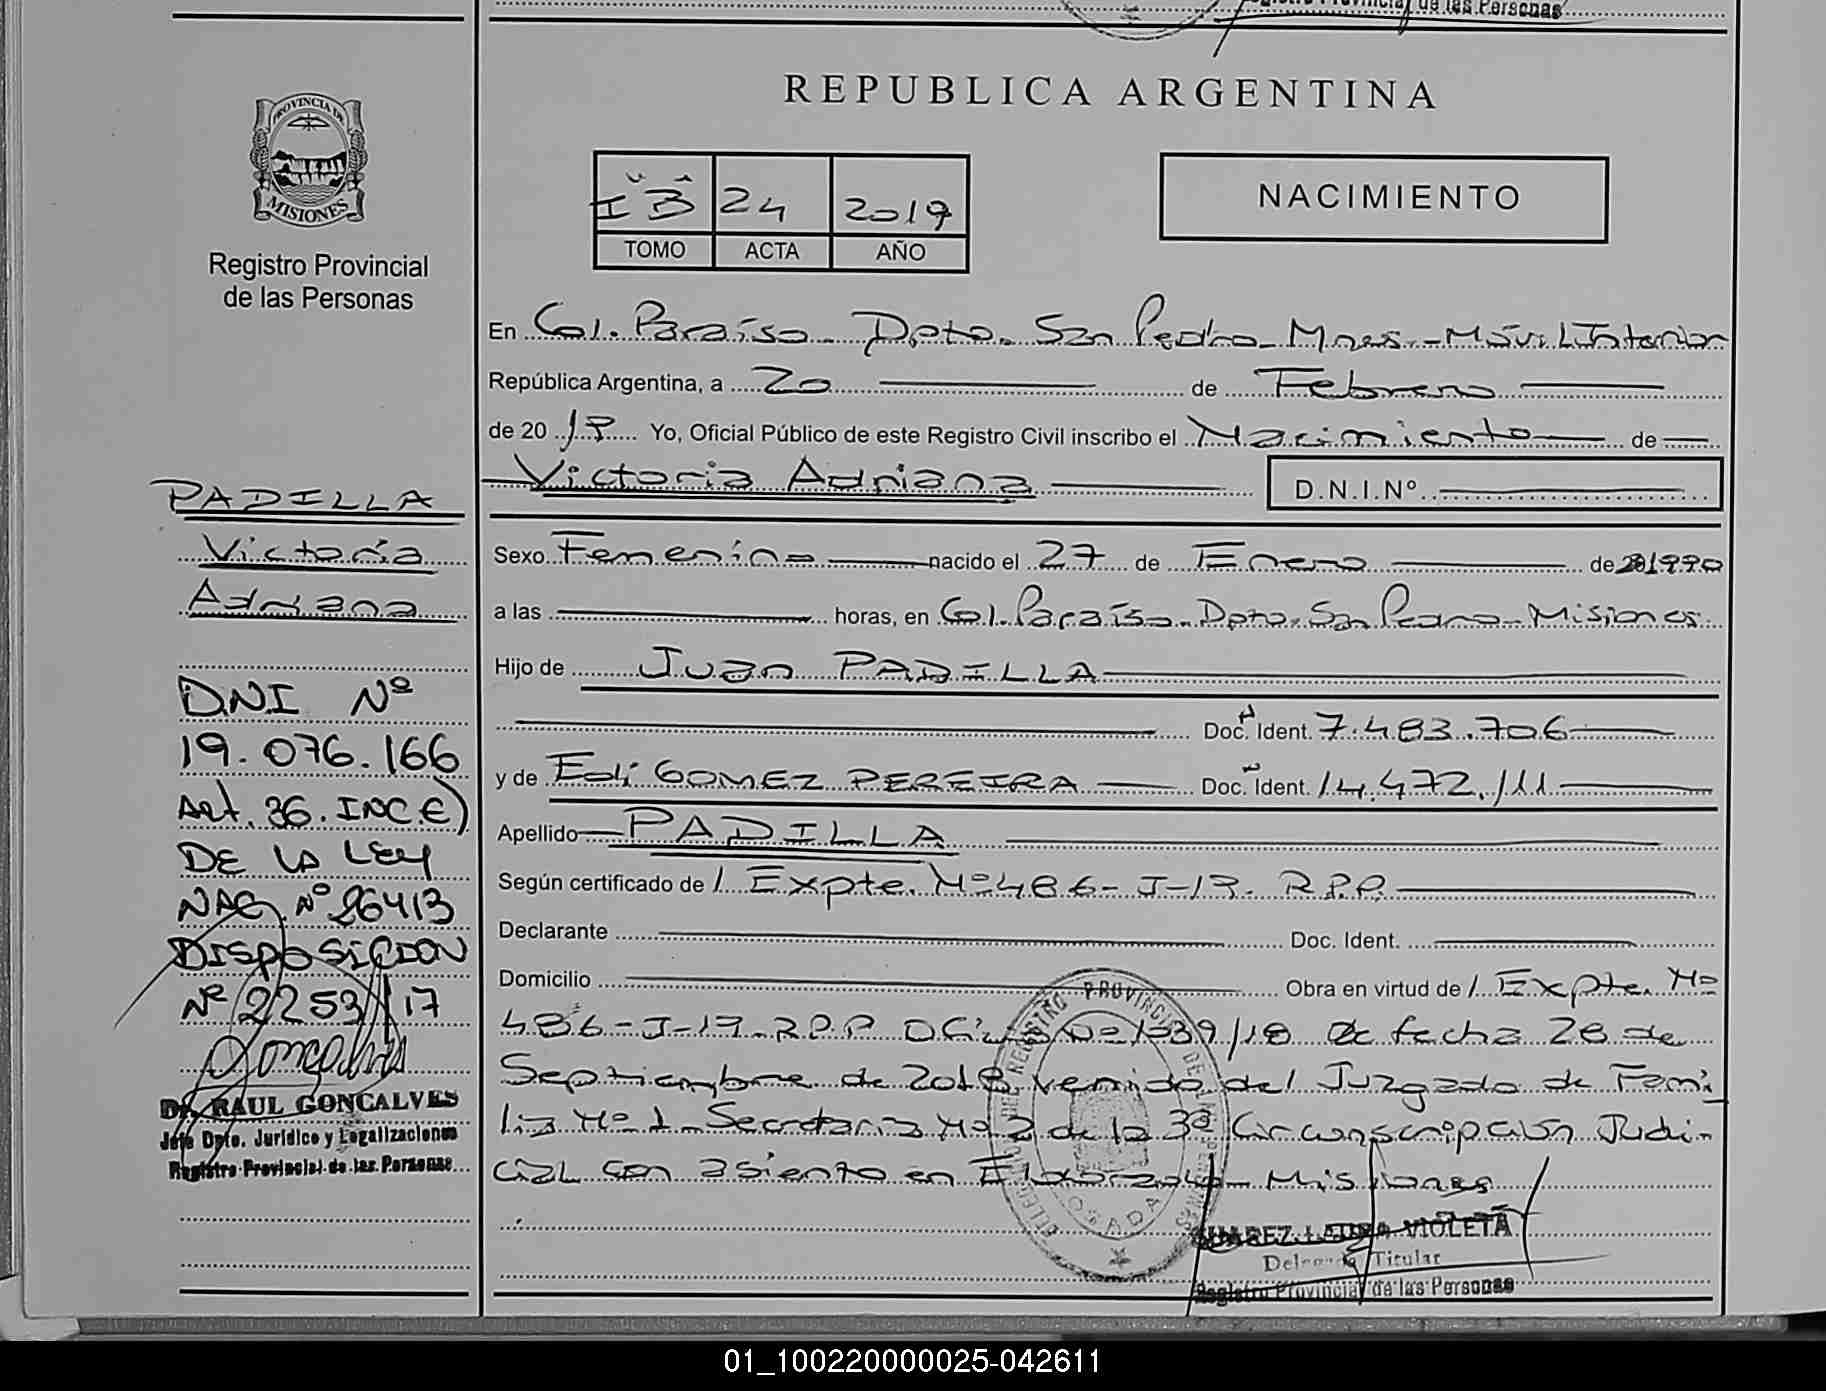 de las Personas
PROVINCIA DE
MISIONES
Registro Provincial
de las Personas
REPUBLICA ARGENTINA
IB 24 2019
TOMO ACTA AÑO
NACIMIENTO
En Col. Paraíso - Dpto. San Pedro - Mnes. - Móvil Interior
República Argentina, a 20 de Febrero
de 2019 Yo, Oficial Público de este Registro Civil inscribo el Nacimiento de
Victoria Adriana D.N.I.Nº
Sexo Femenino nacido el 27 de Enero de 1990
a las horas, en Col. Paraíso - Dpto. San Pedro - Misiones
Hijo de Juan PADILLA
Doc. Ident. 7.483.706
y de Edi GOMEZ PEREIRA Doc. Ident. 14.472.111
Apellido PADILLA
Según certificado de / Expte. Nº 486-J-17- R.P.P.
Declarante Doc. Ident.
Domicilio Obra en virtud de / Expte. Nº
486-J-17-R.P.P Oficio Nº 1339/18 de fecha 28 de
Septiembre de 2018 venido del Juzgado de Fami
lia Nº 1 - Secretaria Nº 2 de la 3ª Circunscripción Judi-
cial con asiento en Eldorado - Misiones
SUAREZ LAURA VIOLETA
Delegada Titular
Registro Provincial de las Personas
PADILLA
Victoria
Adriana
DNI Nº
19.076.166
Art. 36. INC. E)
DE LA LEY
NAC. Nº 26413
DISPOSICION
Nº 2253/17
Goncalves
Dr. RAUL GONCALVES
Jefe Dpto. Jurídico y Legalizaciones
Registro Provincial de las Personas
01_100220000025-042611